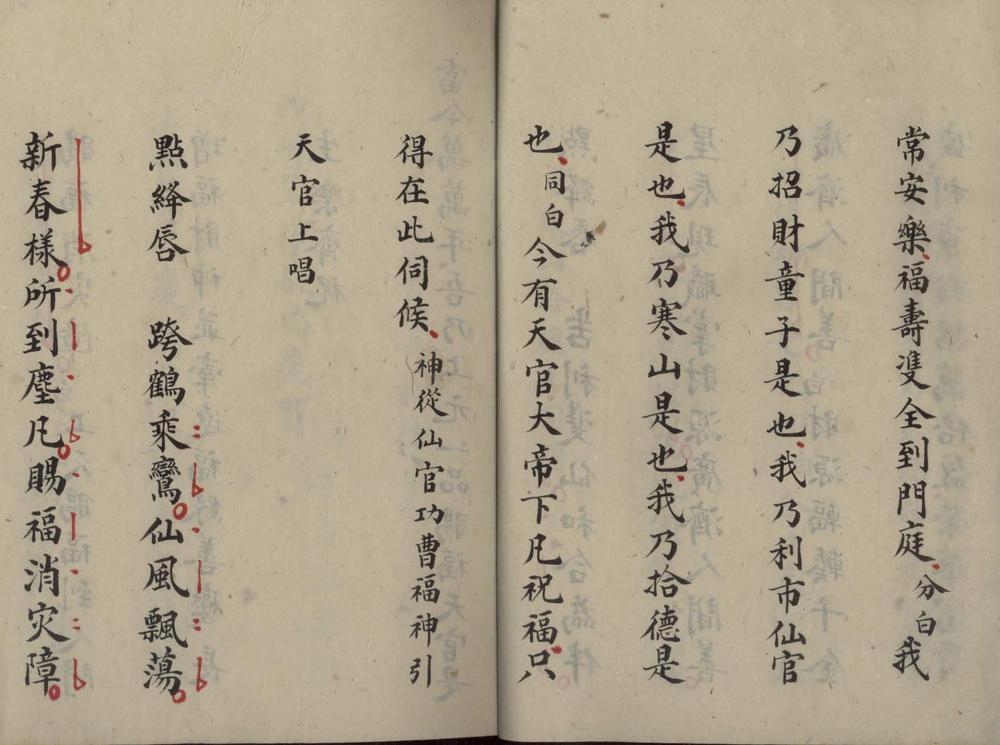 常安樂、福壽𨇤全到門庭、分白我
乃招財童子是也、我乃利市仙官
是也、我乃寒山是也、我乃拾德是
也、同白今有天官大帝下凡祝福、只
得在此伺候、神從仙官功曹福神引
天官上唱
點絳唇　跨鶴乘鸞。仙風飄蕩。
新春樣。所到塵凡。賜福消灾障。